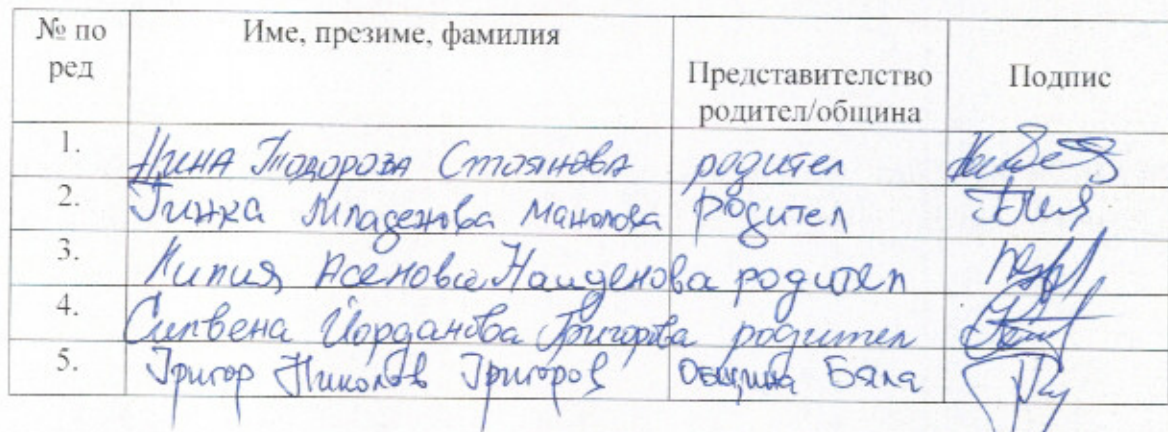 № по ред Име, презиме, фамилия Представителство родител/община Подпис
1. Нина Тодорова Стоянова родител
2. Гинка Младенова Манолова родител
3. Лилия Асенова Найденова родител
4. Силвена Йорданова Григорова родител
5. Григор Николов Григоров Община Бяла